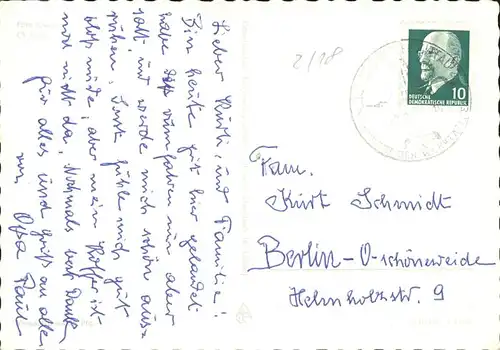 Lieber Kurti, und Familie!
Bin heute gut hier gelandet
habe vom fahren nun aber
satt, und werde mich schön aus=
ruhen. Sonst fühle mich gut
bloß müde, aber mein Koffer ist
noch nicht da, Nochmals vork Dank
für alles und grüß an alle
von Opa Paul
2/18
10
DEUTSCHE
DEMOKRATISCHE REPUBLIK
Fam.
Kurt Schmidt
Berlin-O-schöneweide
Helmholzstr. 9